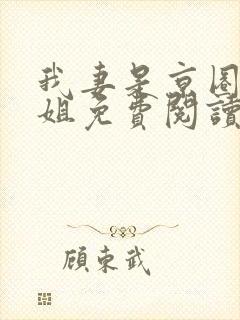 我妻是京圈
姐免費閱讀
顧東武